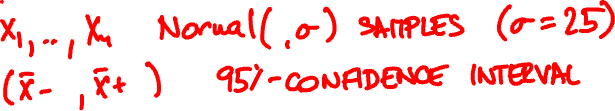 X1,..,Xn Normal( ,σ) SAMPLES (σ=25)
(x̄- , x̄+ ) 95%-CONFIDENCE INTERVAL